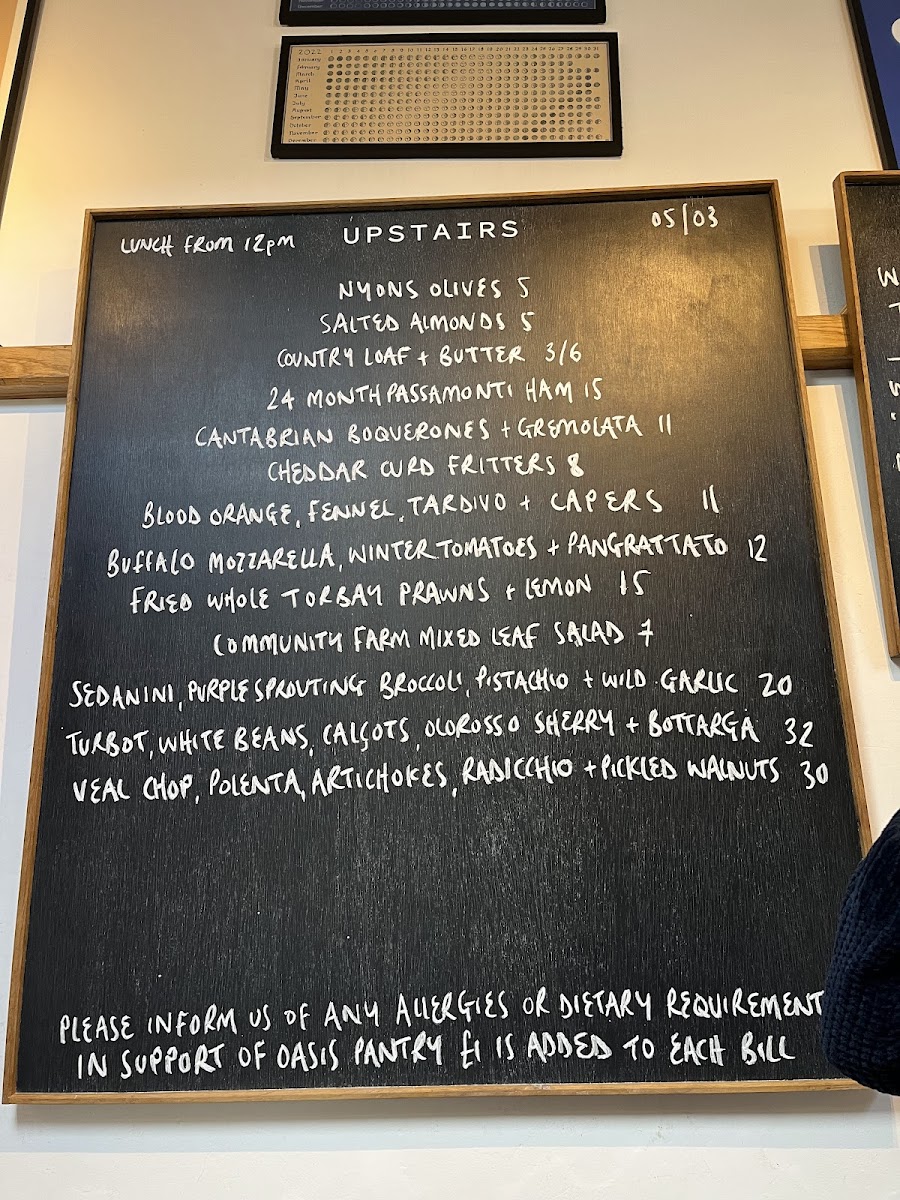 2022 1 2 3 4 5 6 7 8 9 10 11 12 13 14 15 16 17 18 19 20 21 22 23 24 25 26 27 28 29 30 31
January
February
March
April
May
June
July
August
September
October
November
December
LUNCH FROM 12PM
UPSTAIRS
05/03
NYONS OLIVES 5
SALTED ALMONDS 5
COUNTRY LOAF + BUTTER 3/6
24 MONTH PASSAMONTI HAM 15
CANTABRIAN BOQUERONES + GREMOLATA 11
CHEDDAR CURD FRITTERS 8
BLOOD ORANGE, FENNEL, TARDIVO + CAPERS 11
BUFFALO MOZZARELLA, WINTER TOMATOES + PANGRATTATO 12
FRIED WHOLE TORBAY PRAWNS + LEMON 15
COMMUNITY FARM MIXED LEAF SALAD 7
SEDANINI, PURPLE SPROUTING BROCCOLI, PISTACHIO + WILD GARLIC 20
TURBOT, WHITE BEANS, CALÇOTS, OLOROSSO SHERRY + BOTTARGA 32
VEAL CHOP, POLENTA, ARTICHOKES, RADICCHIO + PICKLED WALNUTS 30
PLEASE INFORM US OF ANY ALLERGIES OR DIETARY REQUIREMENT
IN SUPPORT OF OASIS PANTRY £1 IS ADDED TO EACH BILL